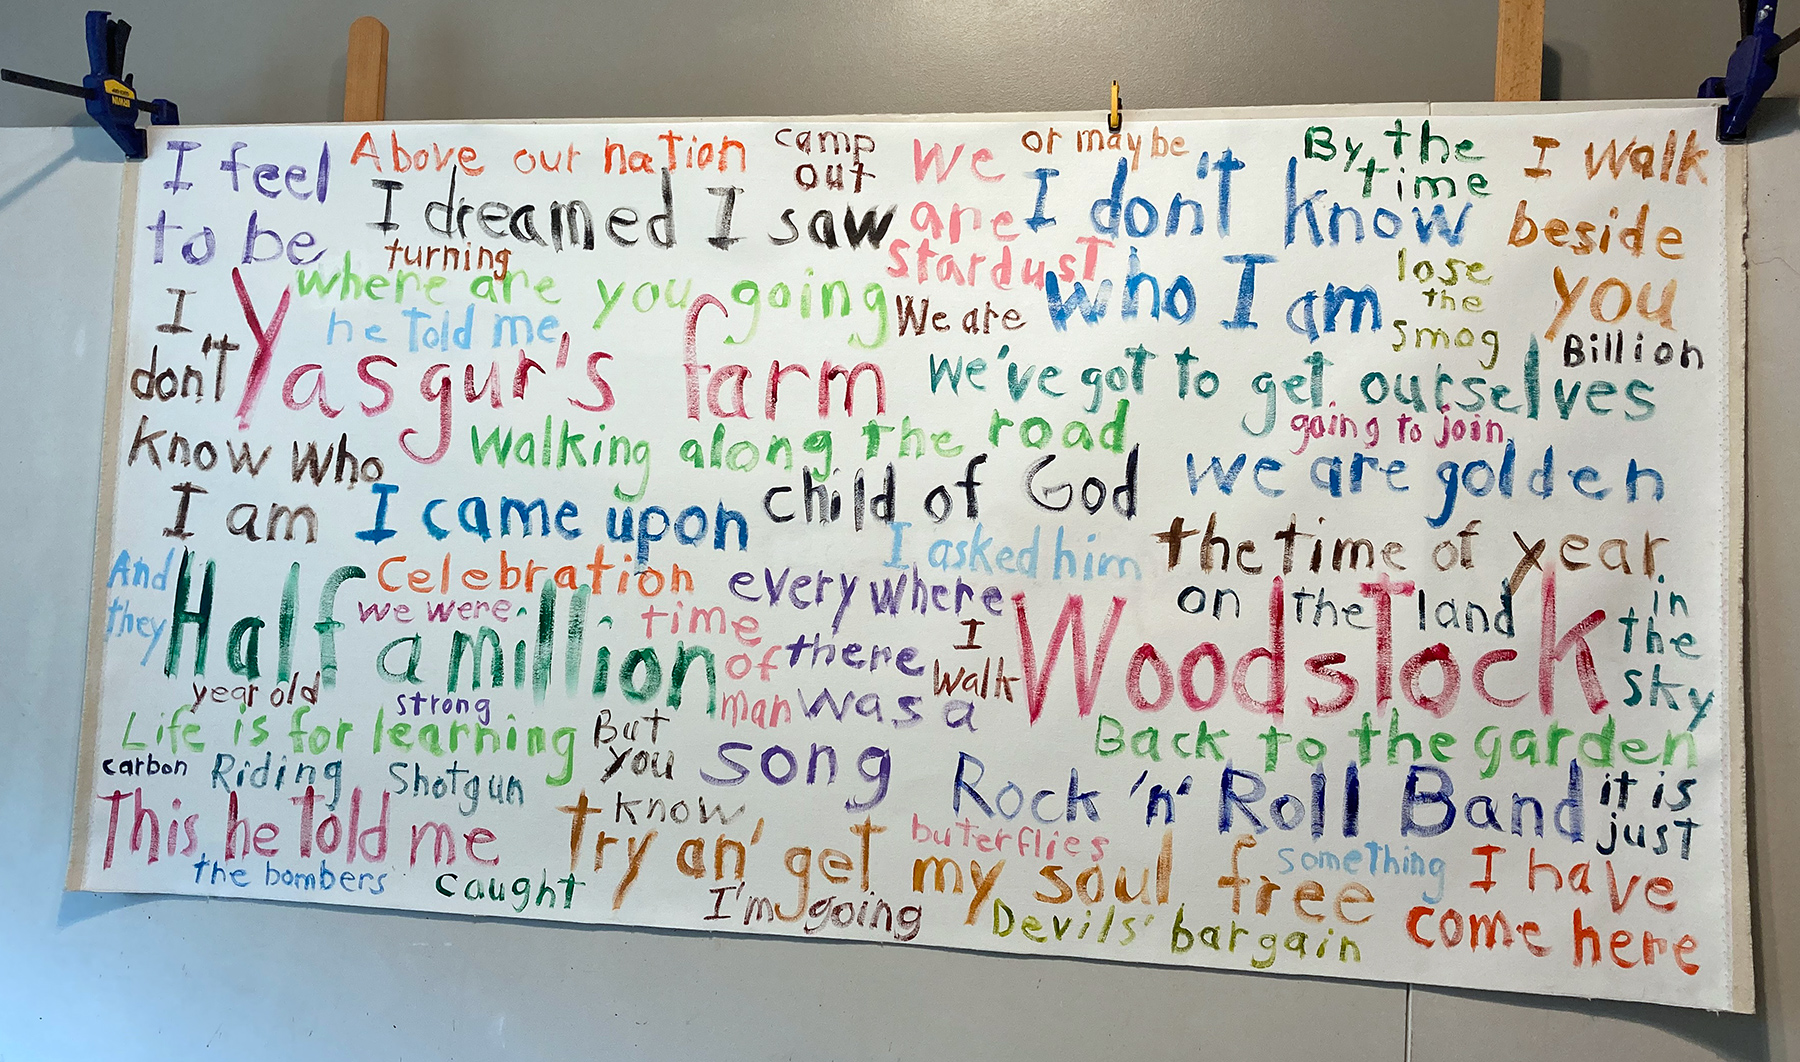 I feel
to be
Above our nation
camp
out
we
are
stardust
or maybe
By the
time
I walk
beside
you
I dreamed I saw
I don't know
who I am
turning
where are you going
he told me
We are
lose
the
smog
Billion
I
don't
know who
I am
Yasgur's farm
we've got to get ourselves
going to join
walking along the road
child of God
we are golden
I came upon
I asked him
the time of year
And
they
Celebration
everywhere
there
was a
song
Half a million
we were
time
of
man
I
walk
on the land
Woodstock
in
the
sky
year old
strong
Life is for learning
But
you
know
Back to the garden
carbon
Riding Shotgun
Rock 'n' Roll Band
it is
just
This he told me
try an' get my soul free
buterflies
something
I have
come here
the bombers
caught
I'm going
Devils' bargain
IRWIN